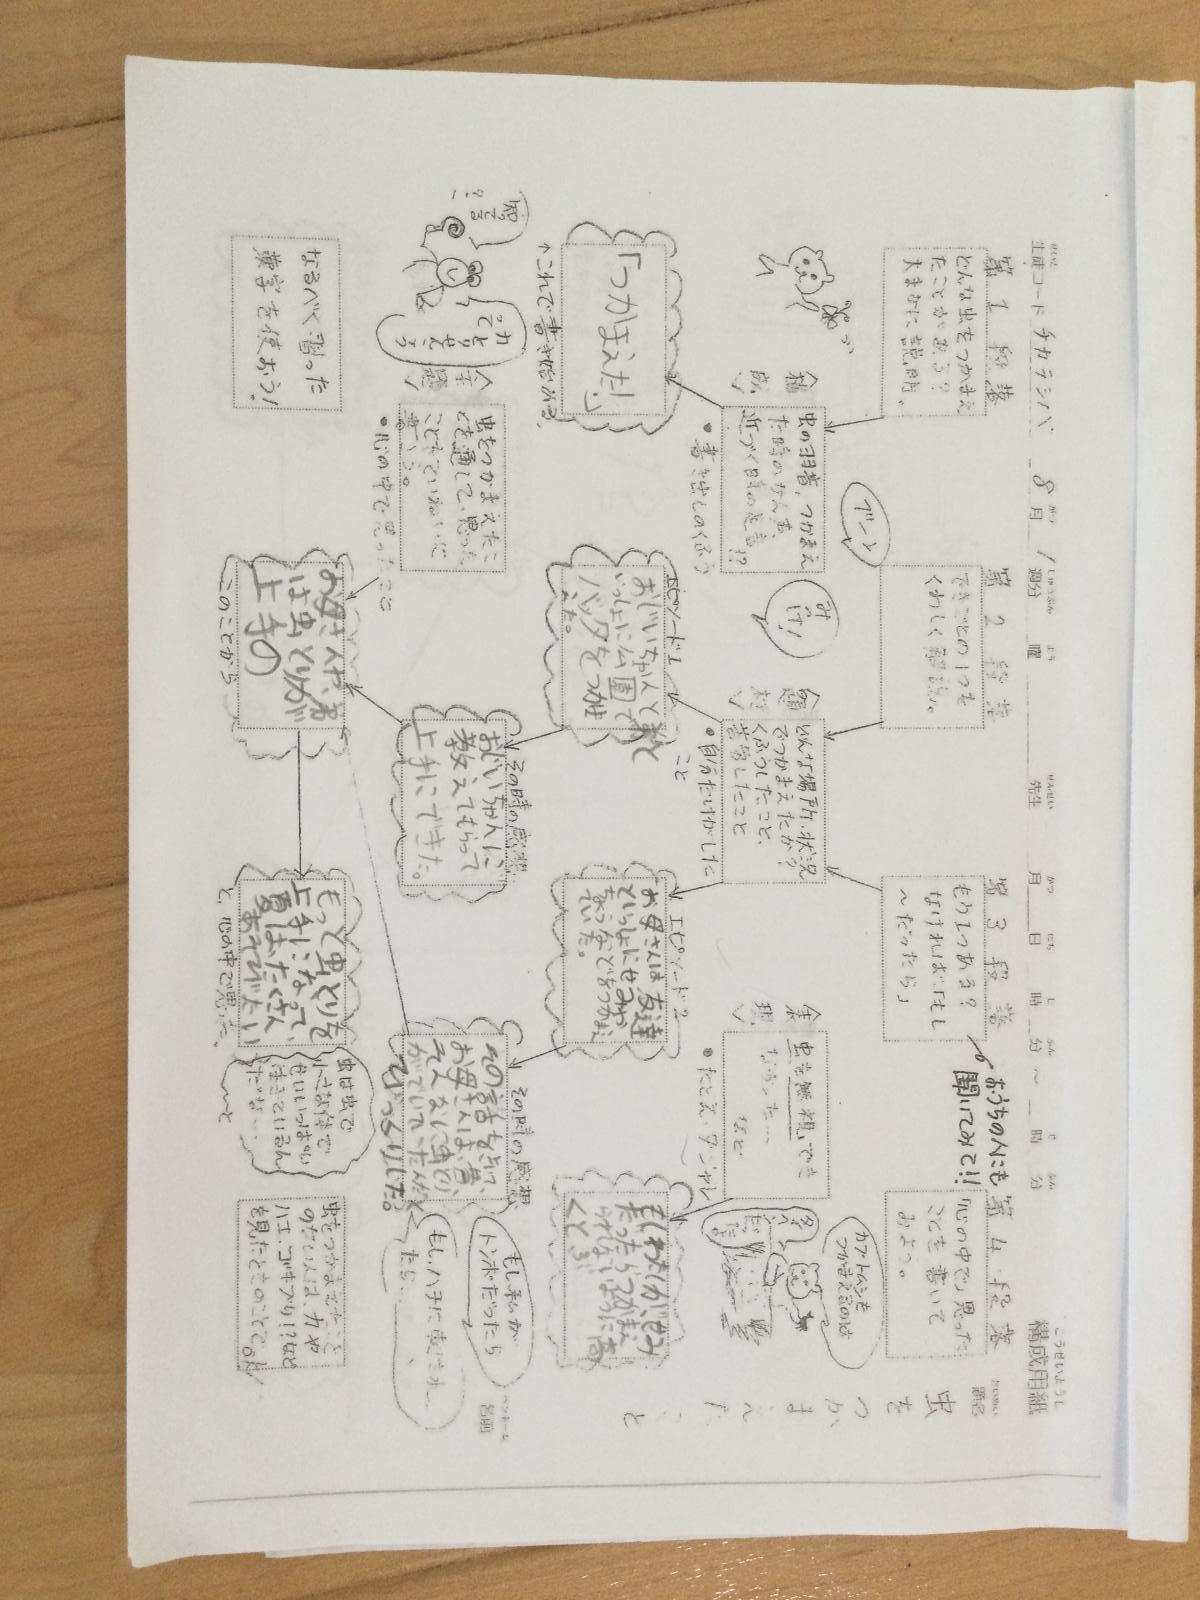 こうせいようし
構成用紙
だいめい
題名
虫をつかまえたこと
ペンネーム
名前
せいと
生徒コード チカラシバ 8月 1週分 曜 先生 月 日 時 分 ～ 時 分
第1段落
どんな虫をつかまえ
たことがある?
大まかに説明。
虫の羽音、つかまえ
た時のなん声、
近づく時の足音!?
・書き出しのくふう
ブーン
「つかまえた!」
↑これで書き始める。
知ってる?
カとりせんこうって
虫をつかまえたこ
とを通して、思った
こともていねいに
書こう。
・心の中で思ったこと
なるべく習った
漢字を使おう!
第2段落
できごとの1つを
くわしく解説。
みーけ!
どんな場所・状況
でつかまえたか?
くふうしたこと、
苦労したこと
・自分だけがした
こと
エピソード1
おじいちゃんと弟と
いっしょに公園で
バッタをつかま
えた。
その時の感想
おじいちゃんに
教えてもらって
上手にできた。
お母さんや、弟
は虫とりが
上手の
このことから
第3段落
もう1つある?
なければ「もし
～だったら」
おうちの人にも
聞いてみて!!
虫を無視でき
なかった…
など
・たとえ・ダジャレ
エピソード2
お母さんは友達
といっしょにせみや
ちょうなどをつかまえ
ていた。
その時の感想
その話を聞いて、
お母さんは、昔、
そんなに虫とり
がでいていたんだと
びっくりした。
もっと虫とりを
上手になって、
夏はたくさん
あそびたい
と、心の中で思った。
虫は虫で
小さな体で
せいいっぱい
生きているん
だな…
～と
第4段落
「心の中で」思った
ことを書いて
みよう。
カブトムシを
つかまえるのは
もしわたしが、せみ
だったらつかまえ
られないように高
くとぶ
もし私が
トンボだったら
もしハチに変身
たら…
虫をつかまえたこと
のない人は、カや
ハエ、ゴキブリ!?など
を見たときのことでOK!